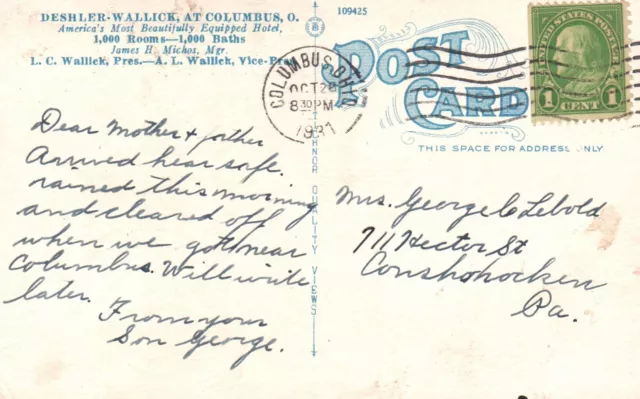 DESHLER-WALLICK, AT COLUMBUS, O.
America's Most Beautifully Equipped Hotel,
1,000 Rooms—1,000 Baths
James H. Michos, Mgr.
L. C. Wallick, Pres.—A. L. Wallick, Vice-Pres.
109425
POST
CARD
THIS SPACE FOR ADDRESS ONLY
COLUMBUS, OHIO
OCT 2
8 30 PM
1931
UNITED STATES POSTAGE
1 CENT 1
QUALITY VIEWS
Dear Mother + father
Arrived hear safe.
rained this morning
and cleared off
when we got near
Columbus. Will write
later.
From your
Son George.
Mrs. George C Lebold
711 Hector St
Conshohocken
Pa.